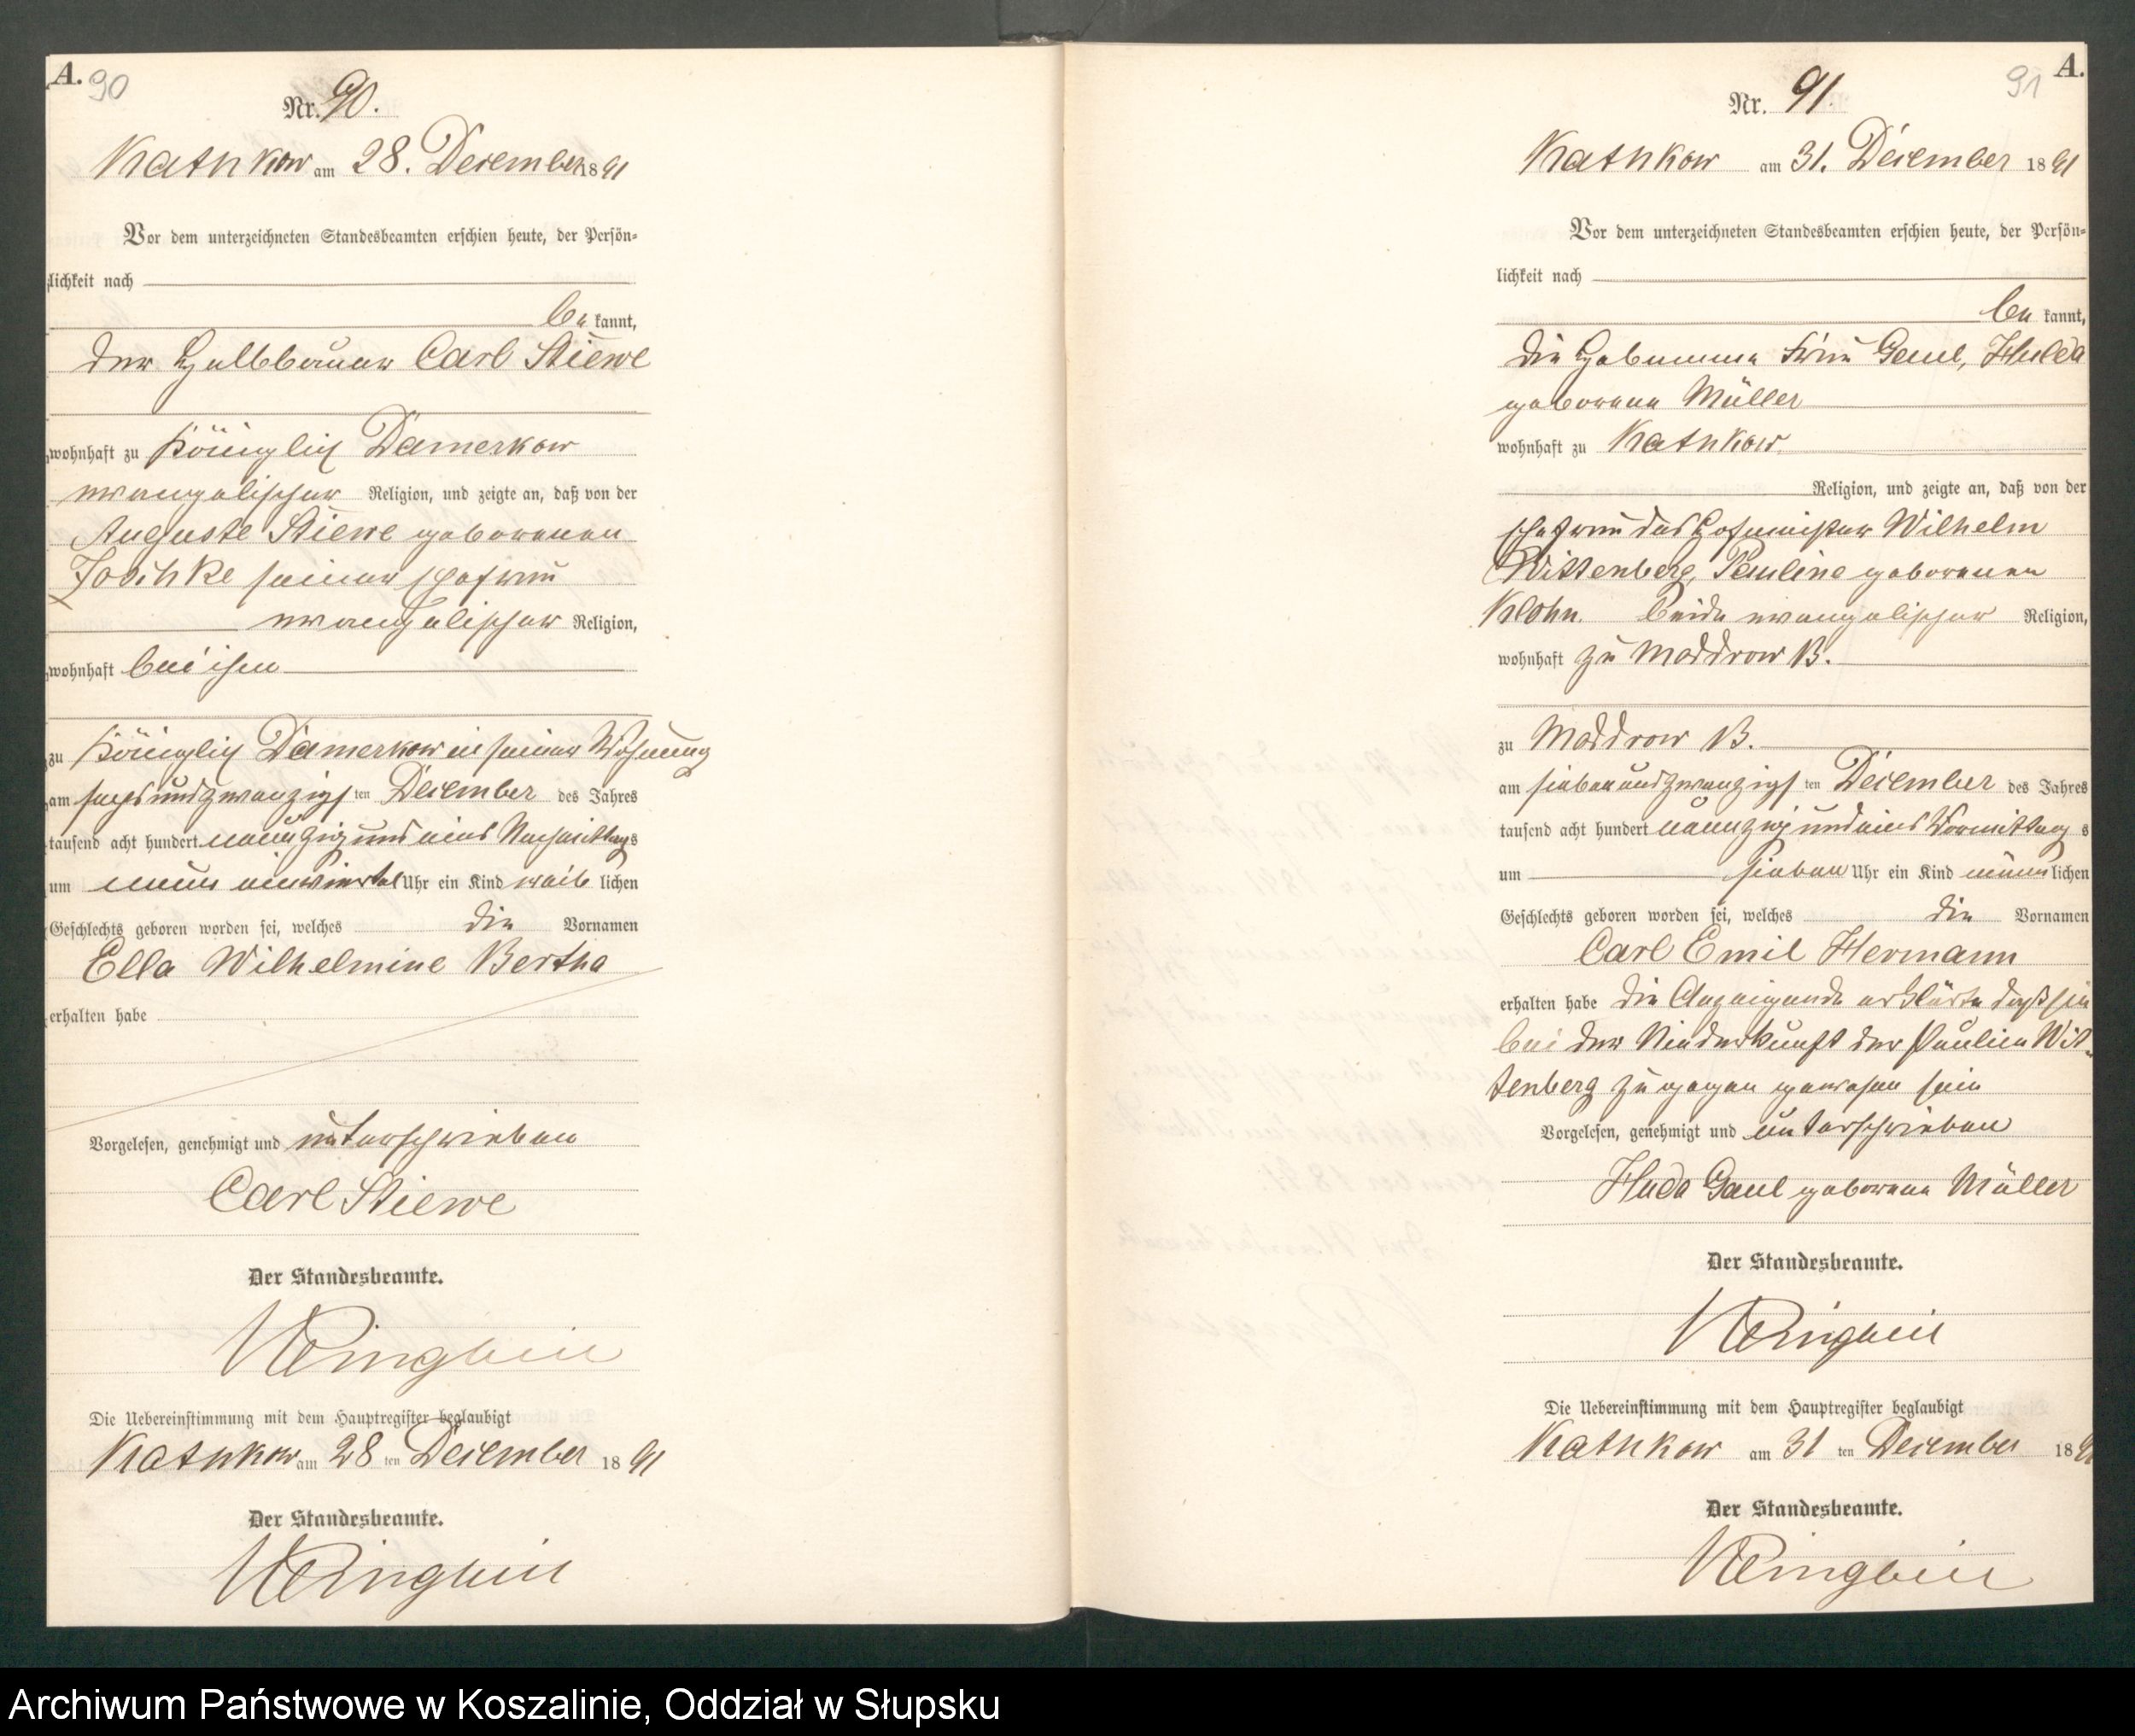 A. 90
Nr. 90.
Kathkow am 28. December 1891
Vor dem unterzeichneten Standesbeamten erschien heute, der Persön-
lichkeit nach
be kannt,
der Halbbauer Carl Stiewe
wohnhaft zu Königlich Damerkow
evangelischer Religion, und zeigte an, daß von der
Auguste Stiewe geborenen
seiner Ehefrau
evangelischer Religion,
wohnhaft bei ihm
zu Königlich Damerkow in seiner Wohnung
am sechsundzwanzigs ten December des Jahres
tausend acht hundert neunzig und eins Nachmittags
um neun einviertel Uhr ein Kind weib lichen
Geschlechts geboren worden sei, welches die Vornamen
Ella Wilhelmine Bertha
erhalten habe
Vorgelesen, genehmigt und unterschrieben
Carl Stiewe
Der Standesbeamte.
Die Uebereinstimmung mit dem Hauptregister beglaubigt
Kathkow am 28 ten December 1891
Der Standesbeamte.
91 A.
Nr. 91.
Kathkow am 31. December 1891
Vor dem unterzeichneten Standesbeamten erschien heute, der Persön-
lichkeit nach
be kannt,
die Hebamme Frau Gaul, Hulda
geborene Müller
wohnhaft zu Kathkow.
Religion, und zeigte an, daß von der
Ehefrau des Hofmeister Wilhelm
Wittenberg, Pauline geborenen
Klohn. beide evangelischer Religion,
wohnhaft zu Moddrow B.
zu Moddrow B.
am siebenundzwanzigs ten December des Jahres
tausend acht hundert neunzig und eins Vormittag s
um sieben Uhr ein Kind männ lichen
Geschlechts geboren worden sei, welches die Vornamen
Carl Emil Hermann
erhalten habe die Anzeigende erklärte daß sie
bei der Niederkunft der Pauline Wit-
tenberg zugegen gewesen sein
Vorgelesen, genehmigt und unterschrieben
Huda Gaul geborene Müller
Der Standesbeamte.
Die Uebereinstimmung mit dem Hauptregister beglaubigt
Kathkow am 31 ten December 1891
Der Standesbeamte.
Archiwum Państwowe w Koszalinie, Oddział w Słupsku